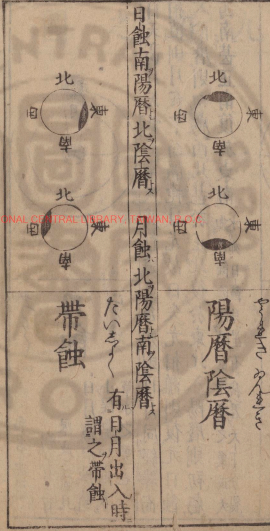 北
東
西
南
北
東
西
南
やうれき ゐんれき
陽暦陰暦
日蝕南陽暦北陰暦 月蝕北陽暦南陰暦
北
東
西
南
北
東
西
南
たいしよく
帶蝕
有日月出入時
謂之帶蝕
ONAL CENTRAL LIBRARY, TAIWAN, R.O.C